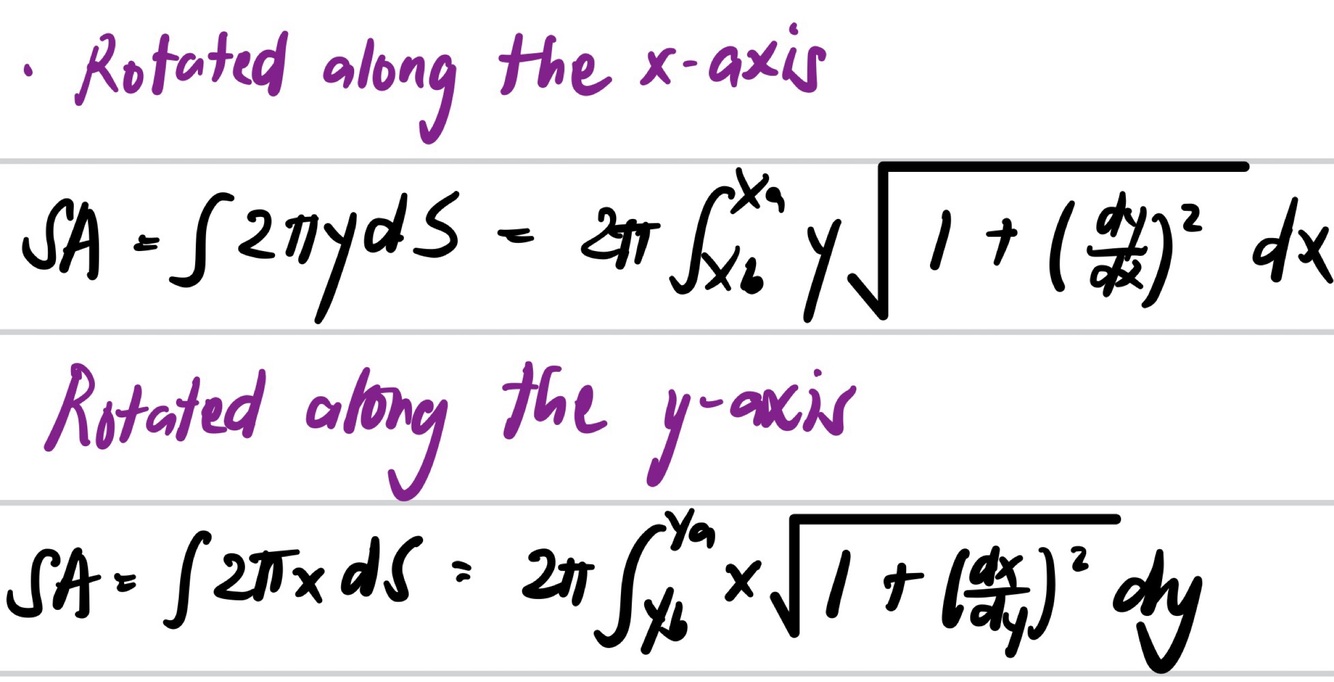 · Rotated along the x-axis
SA = ∫ 2πy dS = 2π ∫_{x_b}^{x_a} y √(1 + (dy/dx)²) dx
Rotated along the y-axis
SA = ∫ 2πx dS = 2π ∫_{y_b}^{y_a} x √(1 + (dx/dy)²) dy